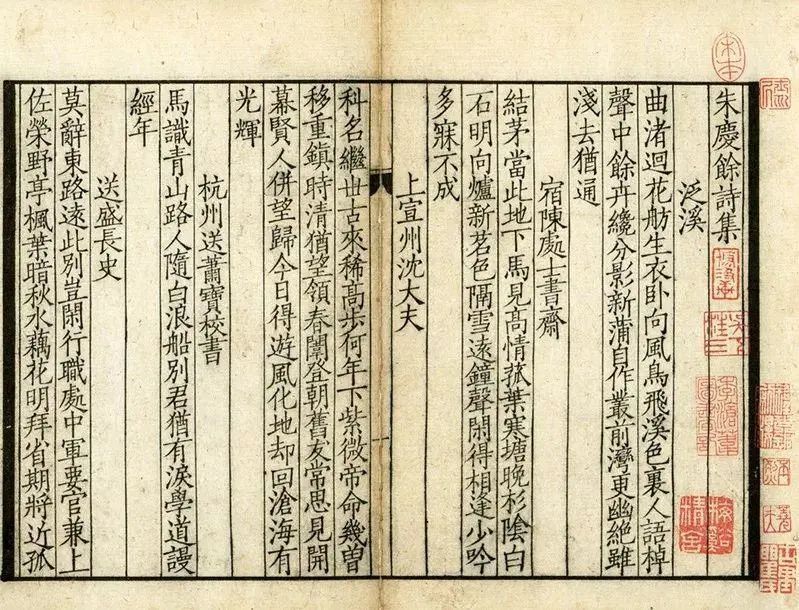 宋本
朱慶餘詩集
泛溪
曲渚迴花舫生衣卧向風鳥飛溪色裏人語棹
聲中餘卉纔分影新蒲自作叢前灣更幽絶雖
淺去猶通
宿陳處士書齋
結茅當此地下馬見高情菰葉寒塘晚杉陰白
石明向爐新茗色隔雪遠鐘聲閑得相逢少吟
多寐不成
上宣州沈大夫
科名繼世古來稀高步何年下紫微帝命幾曾
移重鎮時清猶望領春闈登朝舊友常思見開
幕賢人併望歸今日得遊風化地却回滄海有
光輝
杭州送蕭寶校書
馬識青山路人隨白浪船別君猶有淚學道謾
經年
送盛長史
莫辭東路遠此別豈閑行職處中軍要官兼上
佐榮野亭楓葉暗秋水藕花明拜省期將近孤